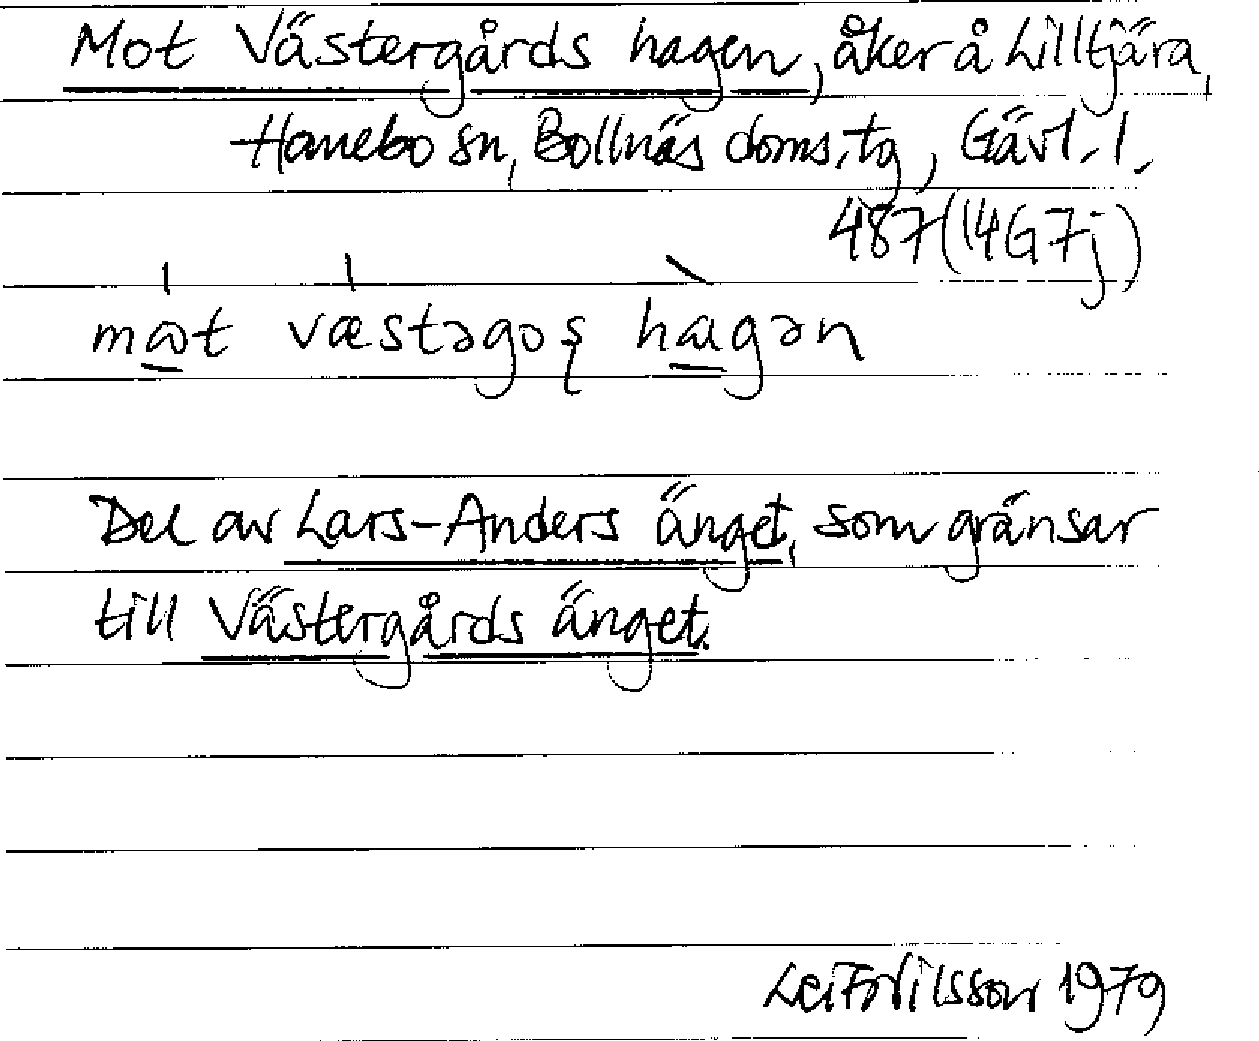 Mot Västergårds hagen, åker å Lilltjära,
Hanebo sn, Bollnäs doms.tg, Gävl. l.
487 (14G7j)
mat væstəgoş hagən
Del av Lars-Anders änget, som gränsar
till Västergårds änget.
Leif Nilsson 1979